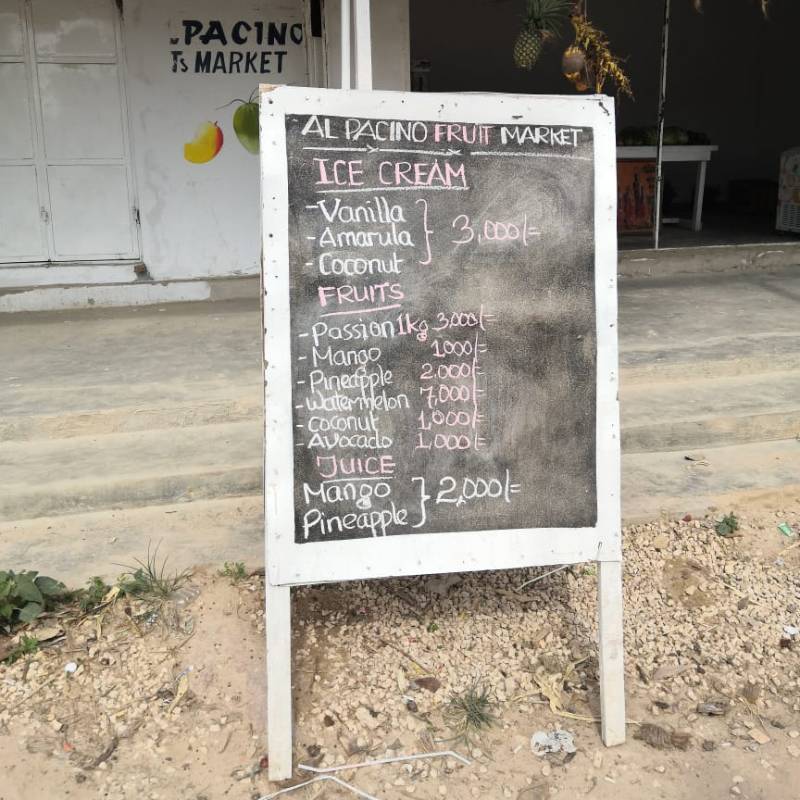 .PACINO
Ts MARKET
AL PACINO FRUIT MARKET
ICE CREAM
-Vanilla
-Amarula } 3,000/=
-Coconut
FRUITS
-Passion 1kg 3,000/=
-Mango 1000/=
-Pineapple 2,000/=
-Watermelon 7,000/=
-coconut 1,000/=
-Avocado 1,000/=
JUICE
Mango } 2,000/=
Pineapple